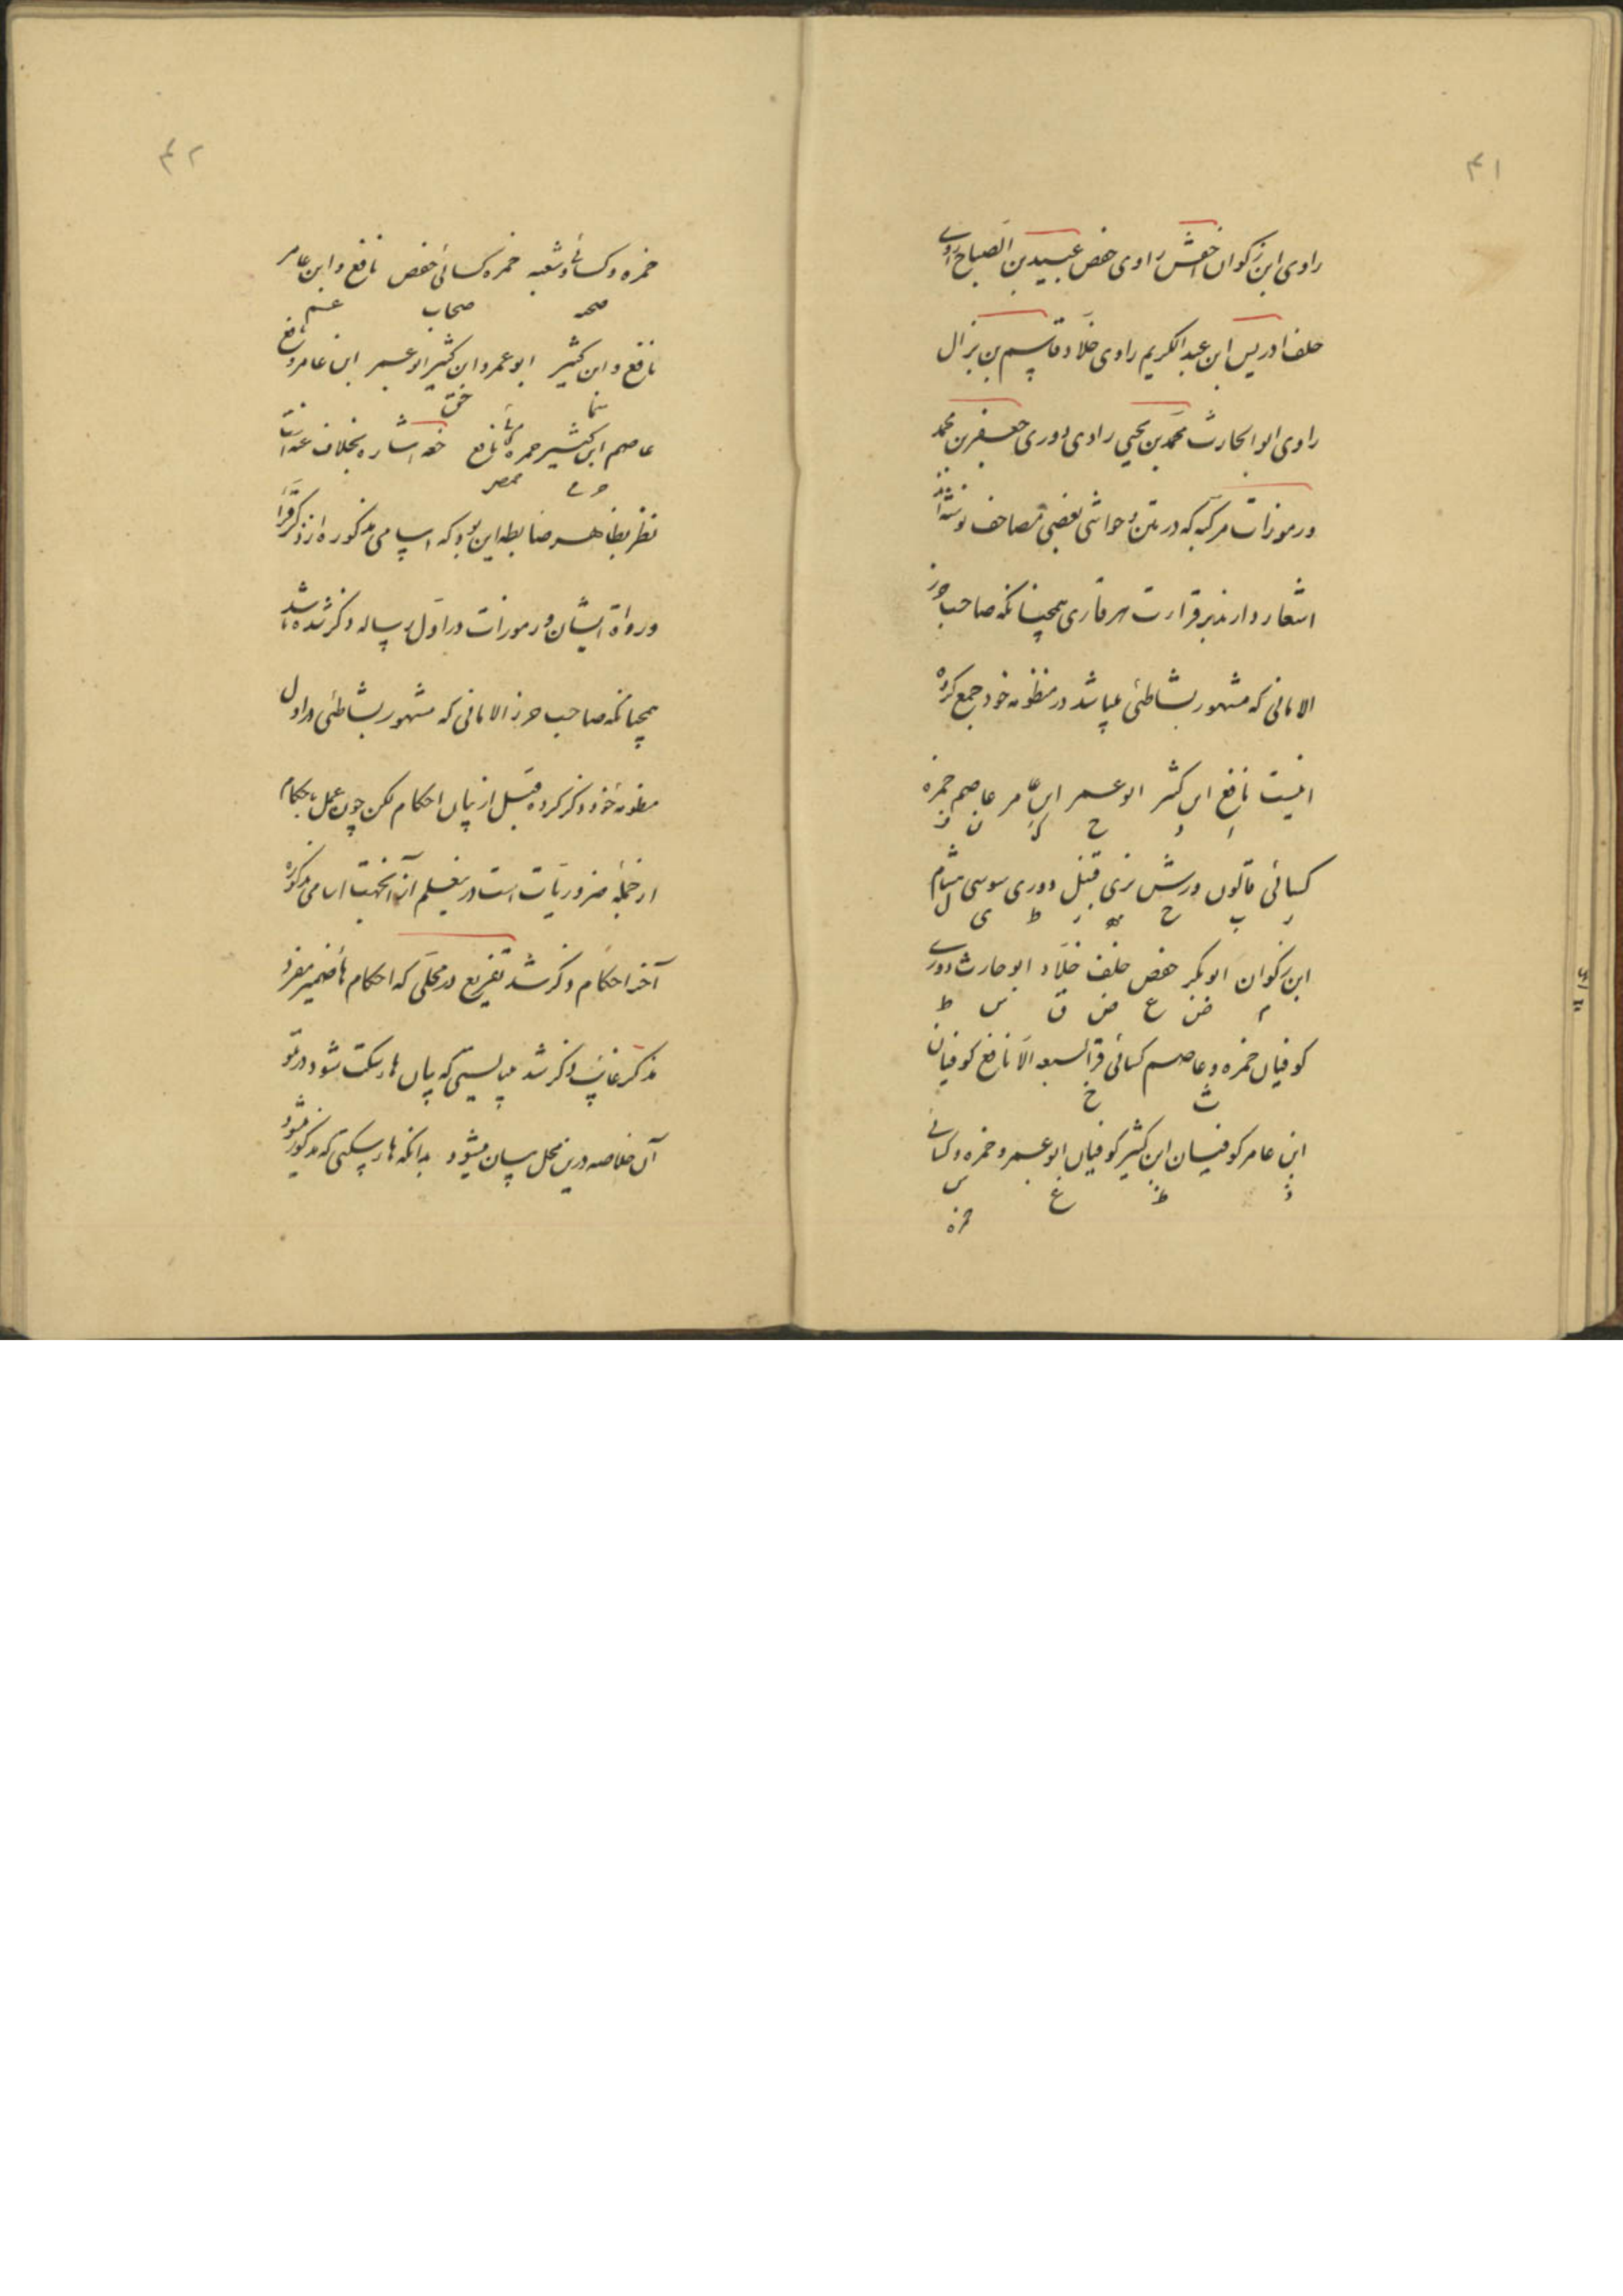 ۴۱
راوی ابن ذکوان اخفش راوی حفص عبید بن الصباح راوی
خلف ادریس ابن عبد الکریم راوی خلاد قاسم بن نزال
راوی ابو الحارث محمد بن یحیی راوی دوری جعفر بن محمد
و رموزات مرکبه که در متن و حواشی بعضی مصاحف نوشته‌اند
اشعار دارند بر قراءت هر قاری همچنانکه صاحب حرز
الامانی که مشهور بشاطبی میباشد در منظومه خود جمع کرده
اینست نافع ابن کثیر ابو عمر ابن عامر عاصم حمزه
ا د ح ک ن ف
کسائی قالون ورش بزی قنبل دوری سوسی هشام
ر ب ج ه ز ط ی ل
ابن ذکوان ابو بکر حفص خلف خلاد ابو حارث دوری
م ص ع ض ق س ط
کوفیان حمزه و عاصم کسائی قرا السبعه الا نافع کوفیان
ث خ
ابن عامر کوفیان ابن کثیر کوفیان ابو عمر و حمزه و کسائی
ذ ظ غ ش
حمزه
۴۲
حمزه و کسائی و شعبه حمزه کسائی حفص نافع و ابن عامر
صحبه صحاب عم
نافع و ابن کثیر ابو عمرو ابن کثیر ابو عمر ابن عامر و نافع
سما حق
عاصم ابن کثیر حمزه نافع اشاره بخلاف
حرمی حصن
نظر بظاهر ضابطه این بود که اسامی مذکوره از ذکر قرا
و رواة ایشان و رموزات در اول رساله ذکر شده باشد
همچنانکه صاحب حرز الامانی که مشهور بشاطبی در اول
منظومه خود ذکر کرده قبل از بیان احکام لکن چون عمل باحکام
از جمله ضروریات است در تعلم آن از آنجهت اسامی مذکوره
آخر احکام ذکر شد تفریع در محلی که احکام هاء ضمیر مفرد
مذکر غائب ذکر شد میبایستی که بیان هاء سکت شود در تلو
آن خلاصه درین محل بیان میشود بدانکه هاء سکتی که مذکور میشود